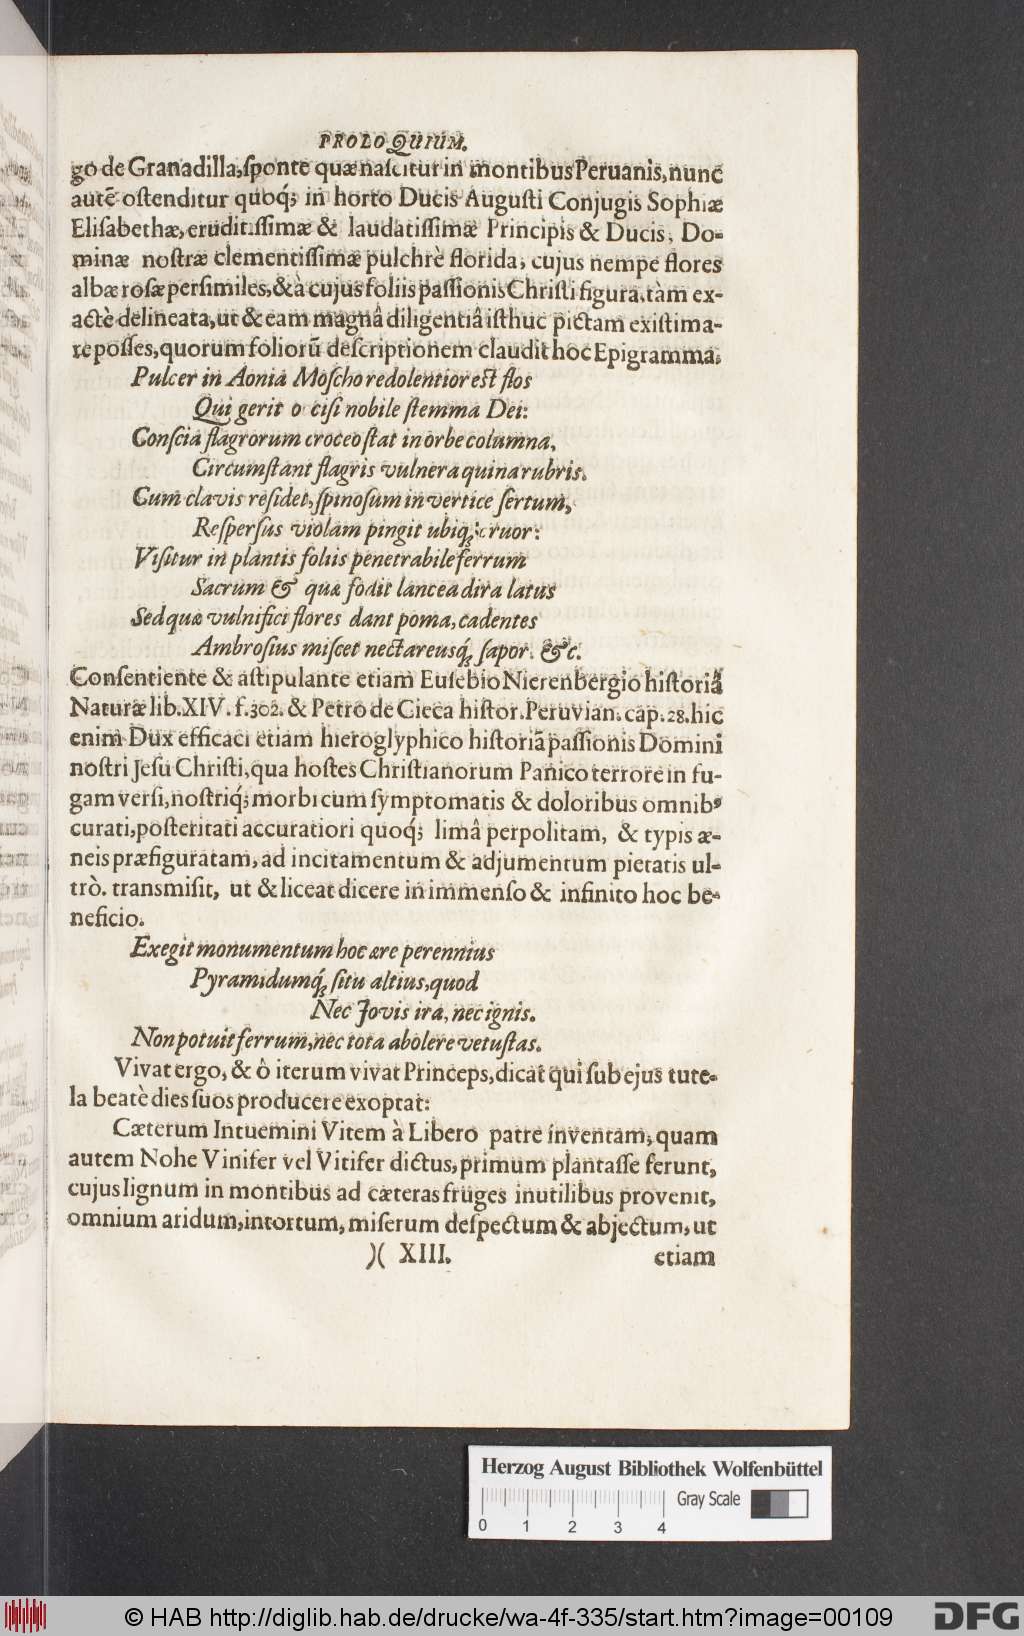 PROLOQUIUM.
go de Granadilla, ſponte quæ naſcitur in montibus Peruanis, nunc
autẽ oſtenditur quoq́; in horto Ducis Auguſti Conjugis Sophiæ
Eliſabethæ, eruditiſſimæ & laudatiſſimæ Principis & Ducis, Do-
minæ noſtræ clementiſſimæ pulchrè florida, cujus nempe flores
albæ roſæ perſimiles, & à cujus foliis paſſionis Chriſti figura, tàm ex-
actè delineata, ut & eam magnâ diligentiâ iſthuc pictam exiſtima-
re poſſes, quorum foliorũ deſcriptionem claudit hoc Epigramma.
Pulcer in Aonia Moſcho redolentior eſt flos
Qui gerit o ciſi nobile ſtemma Dei:
Conſcia flagrorum croceo ſtat in orbe columna,
Circumſtant flagris vulnera quina rubris.
Cum clavis reſidet, ſpinoſum in vertice ſertum,
Reſperſus violam pingit ubiq; cruor:
Viſitur in plantis foliis penetrabile ferrum
Sacrum & quæ fodit lancea dira latus
Sed quæ vulnifici flores dant poma, cadentes
Ambroſius miſcet nectareusq́; ſapor. &c.
Conſentiente & aſtipulante etiam Euſebio Nierenbergio hiſtoriâ
Naturæ lib. XIV. f. 302. & Petro de Cieca hiſtor. Peruvian. cap. 28. hic
enim Dux efficaci etiam hieroglyphico hiſtoriã paſſionis Domini
noſtri Jeſu Chriſti, qua hoſtes Chriſtianorum Panico terrore in fu-
gam verſi, noſtriq́; morbi cum ſymptomatis & doloribus omnibꝰ
curati, poſteritati accuratiori quoq́; limâ perpolitam, & typis æ-
neis præfiguratam, ad incitamentum & adjumentum pietatis ul-
trò. transmiſit, ut & liceat dicere in immenſo & infinito hoc be-
neficio.
Exegit monumentum hoc ære perennius
Pyramidumq́; ſitu altius, quod
Nec Jovis ira, nec ignis.
Non potuit ferrum, nec tota abolere vetuſtas.
Vivat ergo, & ô iterum vivat Princeps, dicat qui ſub ejus tute-
la beatè dies ſuos producere exoptat:
Cæterum Intuemini Vitem à Libero patre inventam, quam
autem Nohe Vinifer vel Vitifer dictus, primum plantaſſe ferunt,
cujus lignum in montibus ad cæteras fruges inutilibus provenit,
omnium aridum, intortum, miſerum deſpectum & abjectum, ut
)( XIII. etiam
Herzog August Bibliothek Wolfenbüttel
Gray Scale
0 1 2 3 4
© HAB http://diglib.hab.de/drucke/wa-4f-335/start.htm?image=00109
DFG